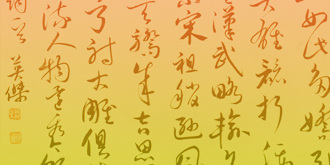 如此多嬌
雄競折
漢武略輸
宋祖稍遜風
天驕成吉思
弓射大雕俱
流人物還看
英傑